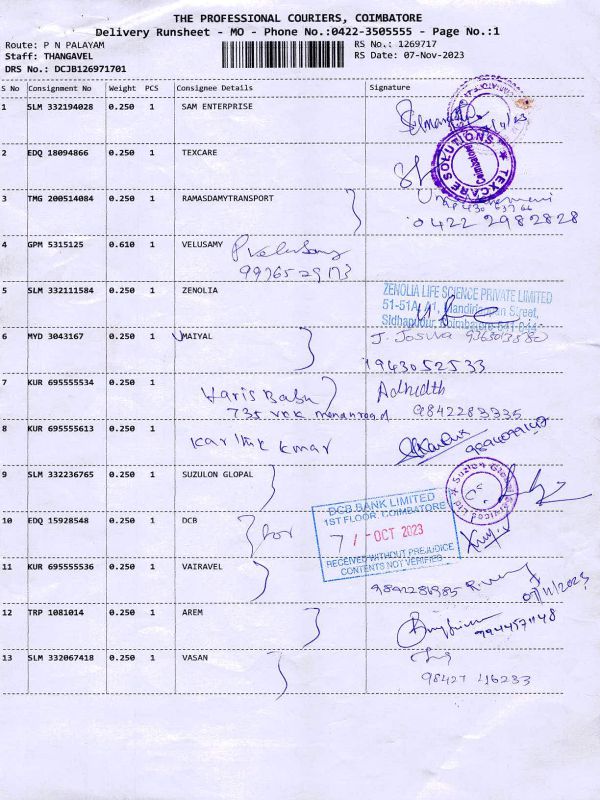 THE PROFESSIONAL COURIERS, COIMBATORE
Delivery Runsheet - MO - Phone No.:0422-3505555 - Page No.:1
Route: P N PALAYAM
RS No.: 1269717
Staff: THANGAVEL
RS Date: 07-Nov-2023
DRS No.: DCJB126971701
S No Consignment No Weight PCS Consignee Details Signature
1 SLM 332194028 0.250 1 SAM ENTERPRISE
2 EDQ 18094866 0.250 1 TEXCARE
TEXCARE SOLUTIONS
Coimbatore
3 TMG 200514084 0.250 1 RAMASDAMYTRANSPORT
0422 2982828
4 GPM 5315125 0.610 1 VELUSAMY P Velusamy
5 SLM 332111584 0.250 1 ZENOLIA
ZENOLIA LIFE SCIENCE PRIVATE LIMITED
51-51A, A1, Nandirangan Street,
Sidhapudur, Coimbatore-641 044
6 MYD 3043167 0.250 1 MAIYAL J. Josva
1943052533
7 KUR 695555534 0.250 1 Haris Babu
735 VRK
9842283335
8 KUR 695555613 0.250 1 Karthik Kmar
9 SLM 332236765 0.250 1 SUZULON GLOPAL
Suzlon Global Services Ltd
10 EDQ 15928548 0.250 1 DCB for
DCB BANK LIMITED
1ST FLOOR, COIMBATORE
7 / - OCT 2023
RECEIVED WITHOUT PREJUDICE
CONTENTS NOT VERIFIED
11 KUR 695555536 0.250 1 VAIRAVEL
07/11/2023
12 TRP 1081014 0.250 1 AREM
13 SLM 332067418 0.250 1 VASAN
98427 46233